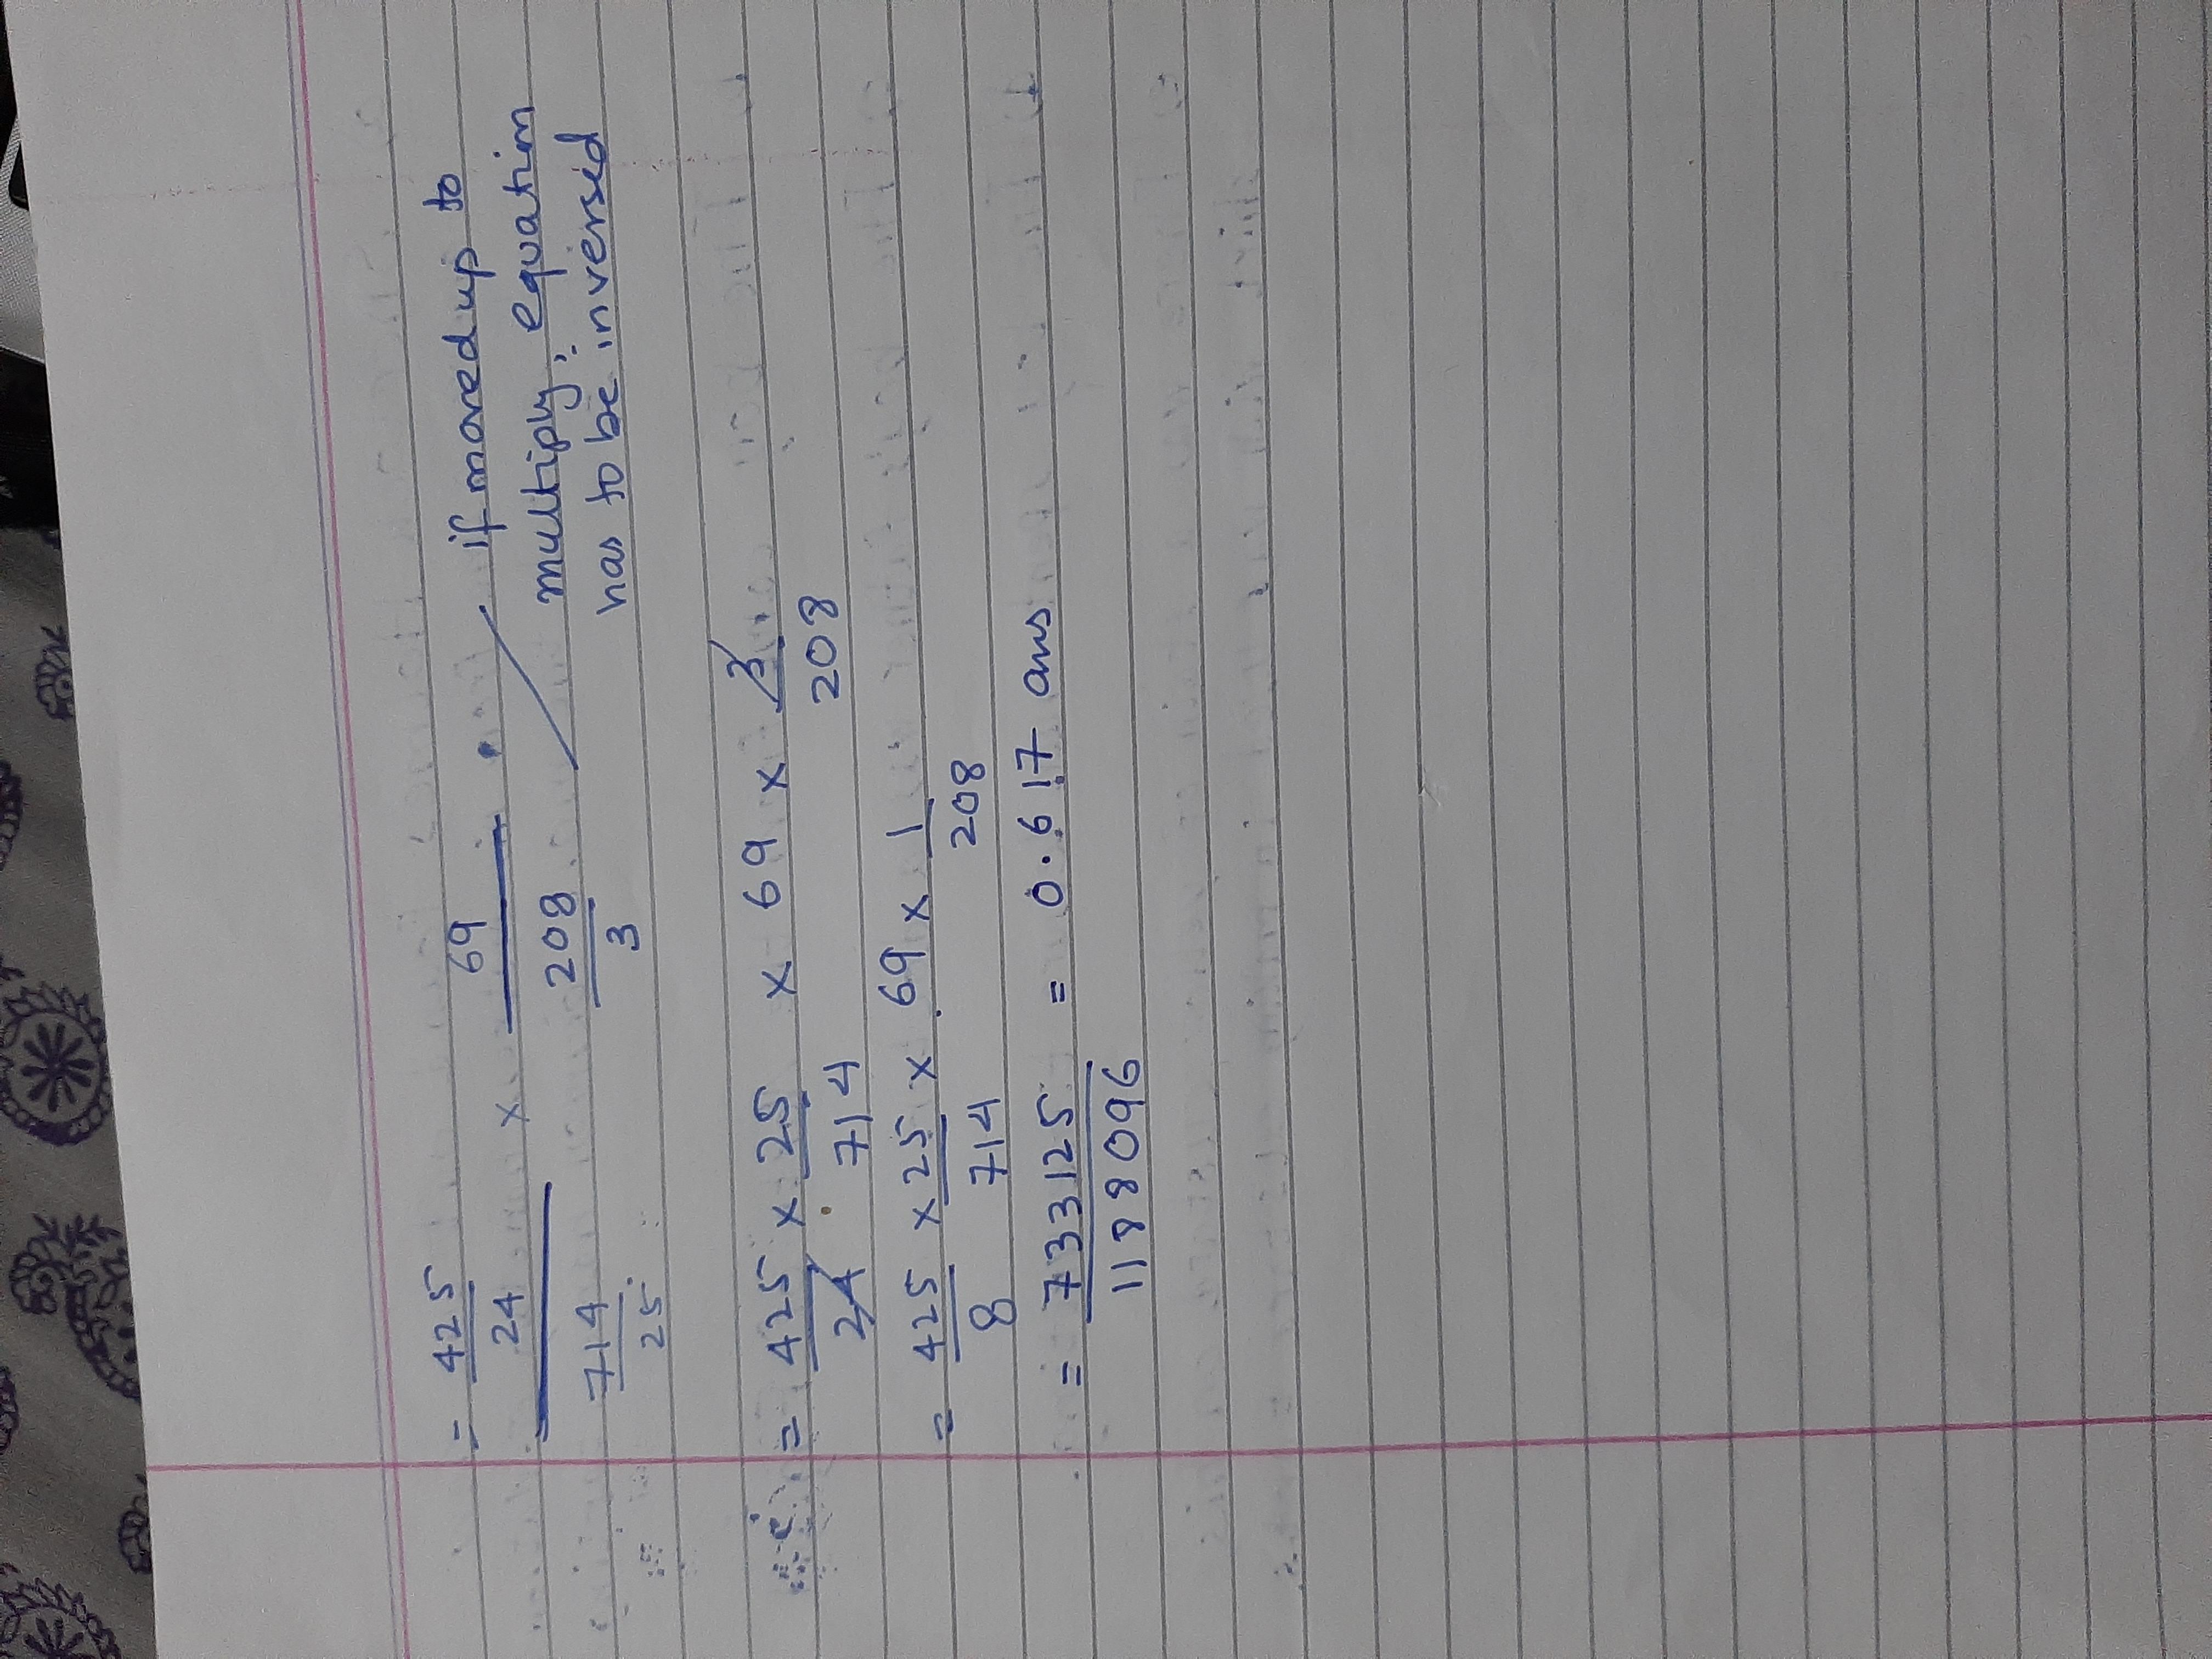 = 425/24 × 69 if moved up to
714/25 208/3 multiply; equation
has to be inversed
= 425/24 × 25/714 × 69 × 3/208
= 425/8 × 25/714 × 69 × 1/208
= 733125/1188096 = 0.617 ans